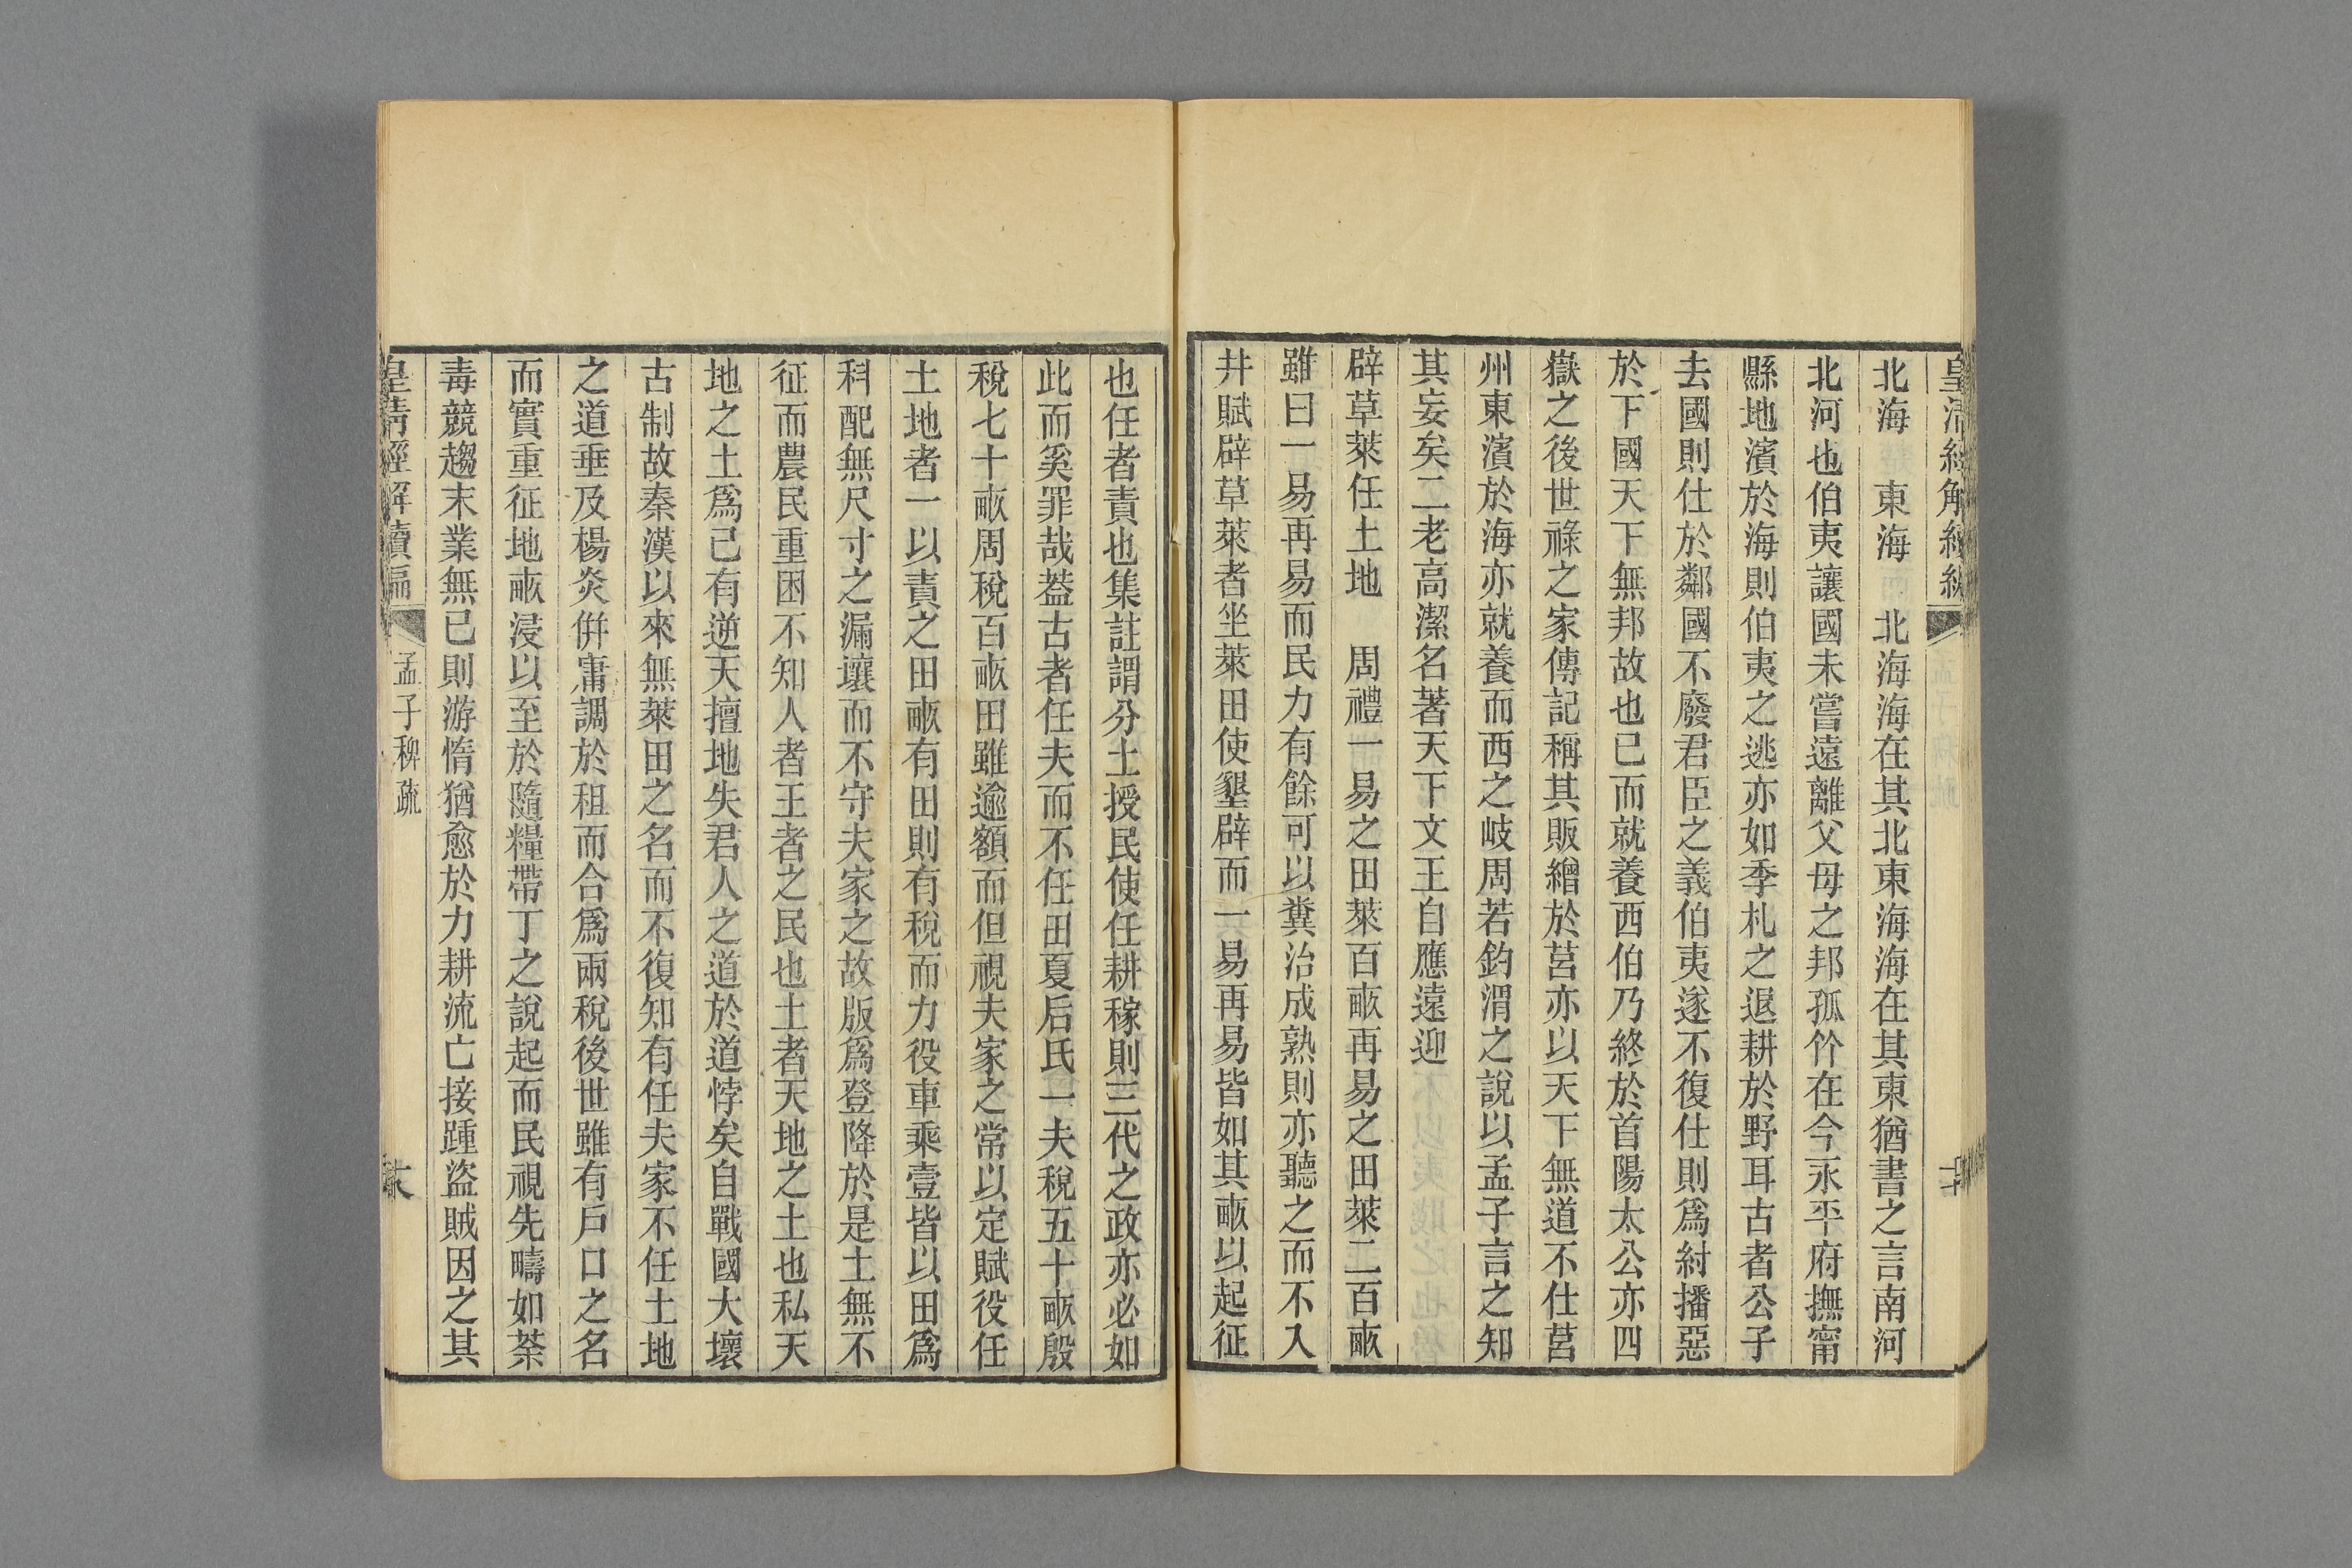 北海　東海　北海海在其北東海海在其東猶書之言南河
北河也伯夷讓國未嘗遠離父母之邦孤竹在今永平府撫甯
縣地濱於海則伯夷之逃亦如季札之退耕於野耳古者公子
去國則仕於鄰國不廢君臣之義伯夷遂不復仕則爲紂播惡
於下國天下無邦故也已而就養西伯乃終於首陽太公亦四
嶽之後世祿之家傳記稱其販繒於莒亦以天下無道不仕莒
州東濱於海亦就養而西之岐周若釣渭之說以孟子言之知
其妄矣二老高潔名著天下文王自應遠迎
辟草萊任土地　周禮一易之田萊百畝再易之田萊二百畝
雖曰一易再易而民力有餘可以糞治成熟則亦聽之而不入
井賦辟草萊者坐萊田使墾辟而一易再易皆如其畝以起征
也任者責也集註謂分土授民使任耕稼則三代之政亦必如
此而奚罪哉葢古者任夫而不任田夏后氏一夫稅五十畝殷
稅七十畝周稅百畝田雖逾額而但視夫家之常以定賦役任
土地者一以責之田畝有田則有稅而力役車乘壹皆以田爲
科配無尺寸之漏壤而不守夫家之故版爲登降於是土無不
征而農民重困不知人者王者之民也土者天地之土也私天
地之土爲己有逆天擅地失君人之道於道悖矣自戰國大壞
古制故秦漢以來無萊田之名而不復知有任夫家不任土地
之道垂及楊炎併庸調於租而合爲兩稅後世雖有戶口之名
而實重征地畝浸以至於隨糧帶丁之說起而民視先疇如荼
毒競趨末業無已則游惰猶愈於力耕流亡接踵盜賊因之其
皇清經解續編　孟子稗疏